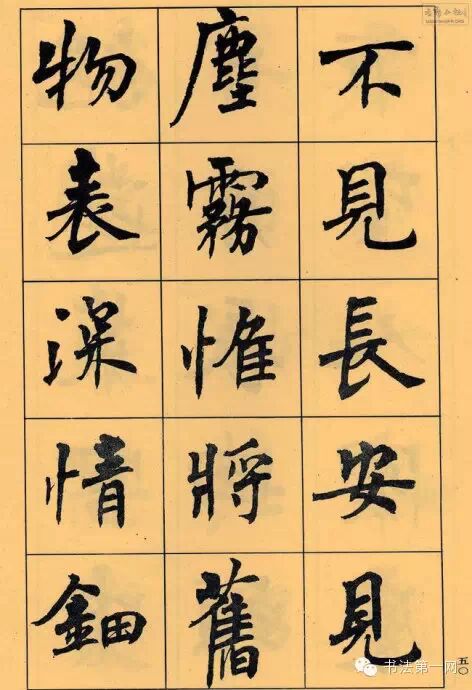 不見長安見
塵霧惟將舊
物表深情鈿
五〇
书法第一网